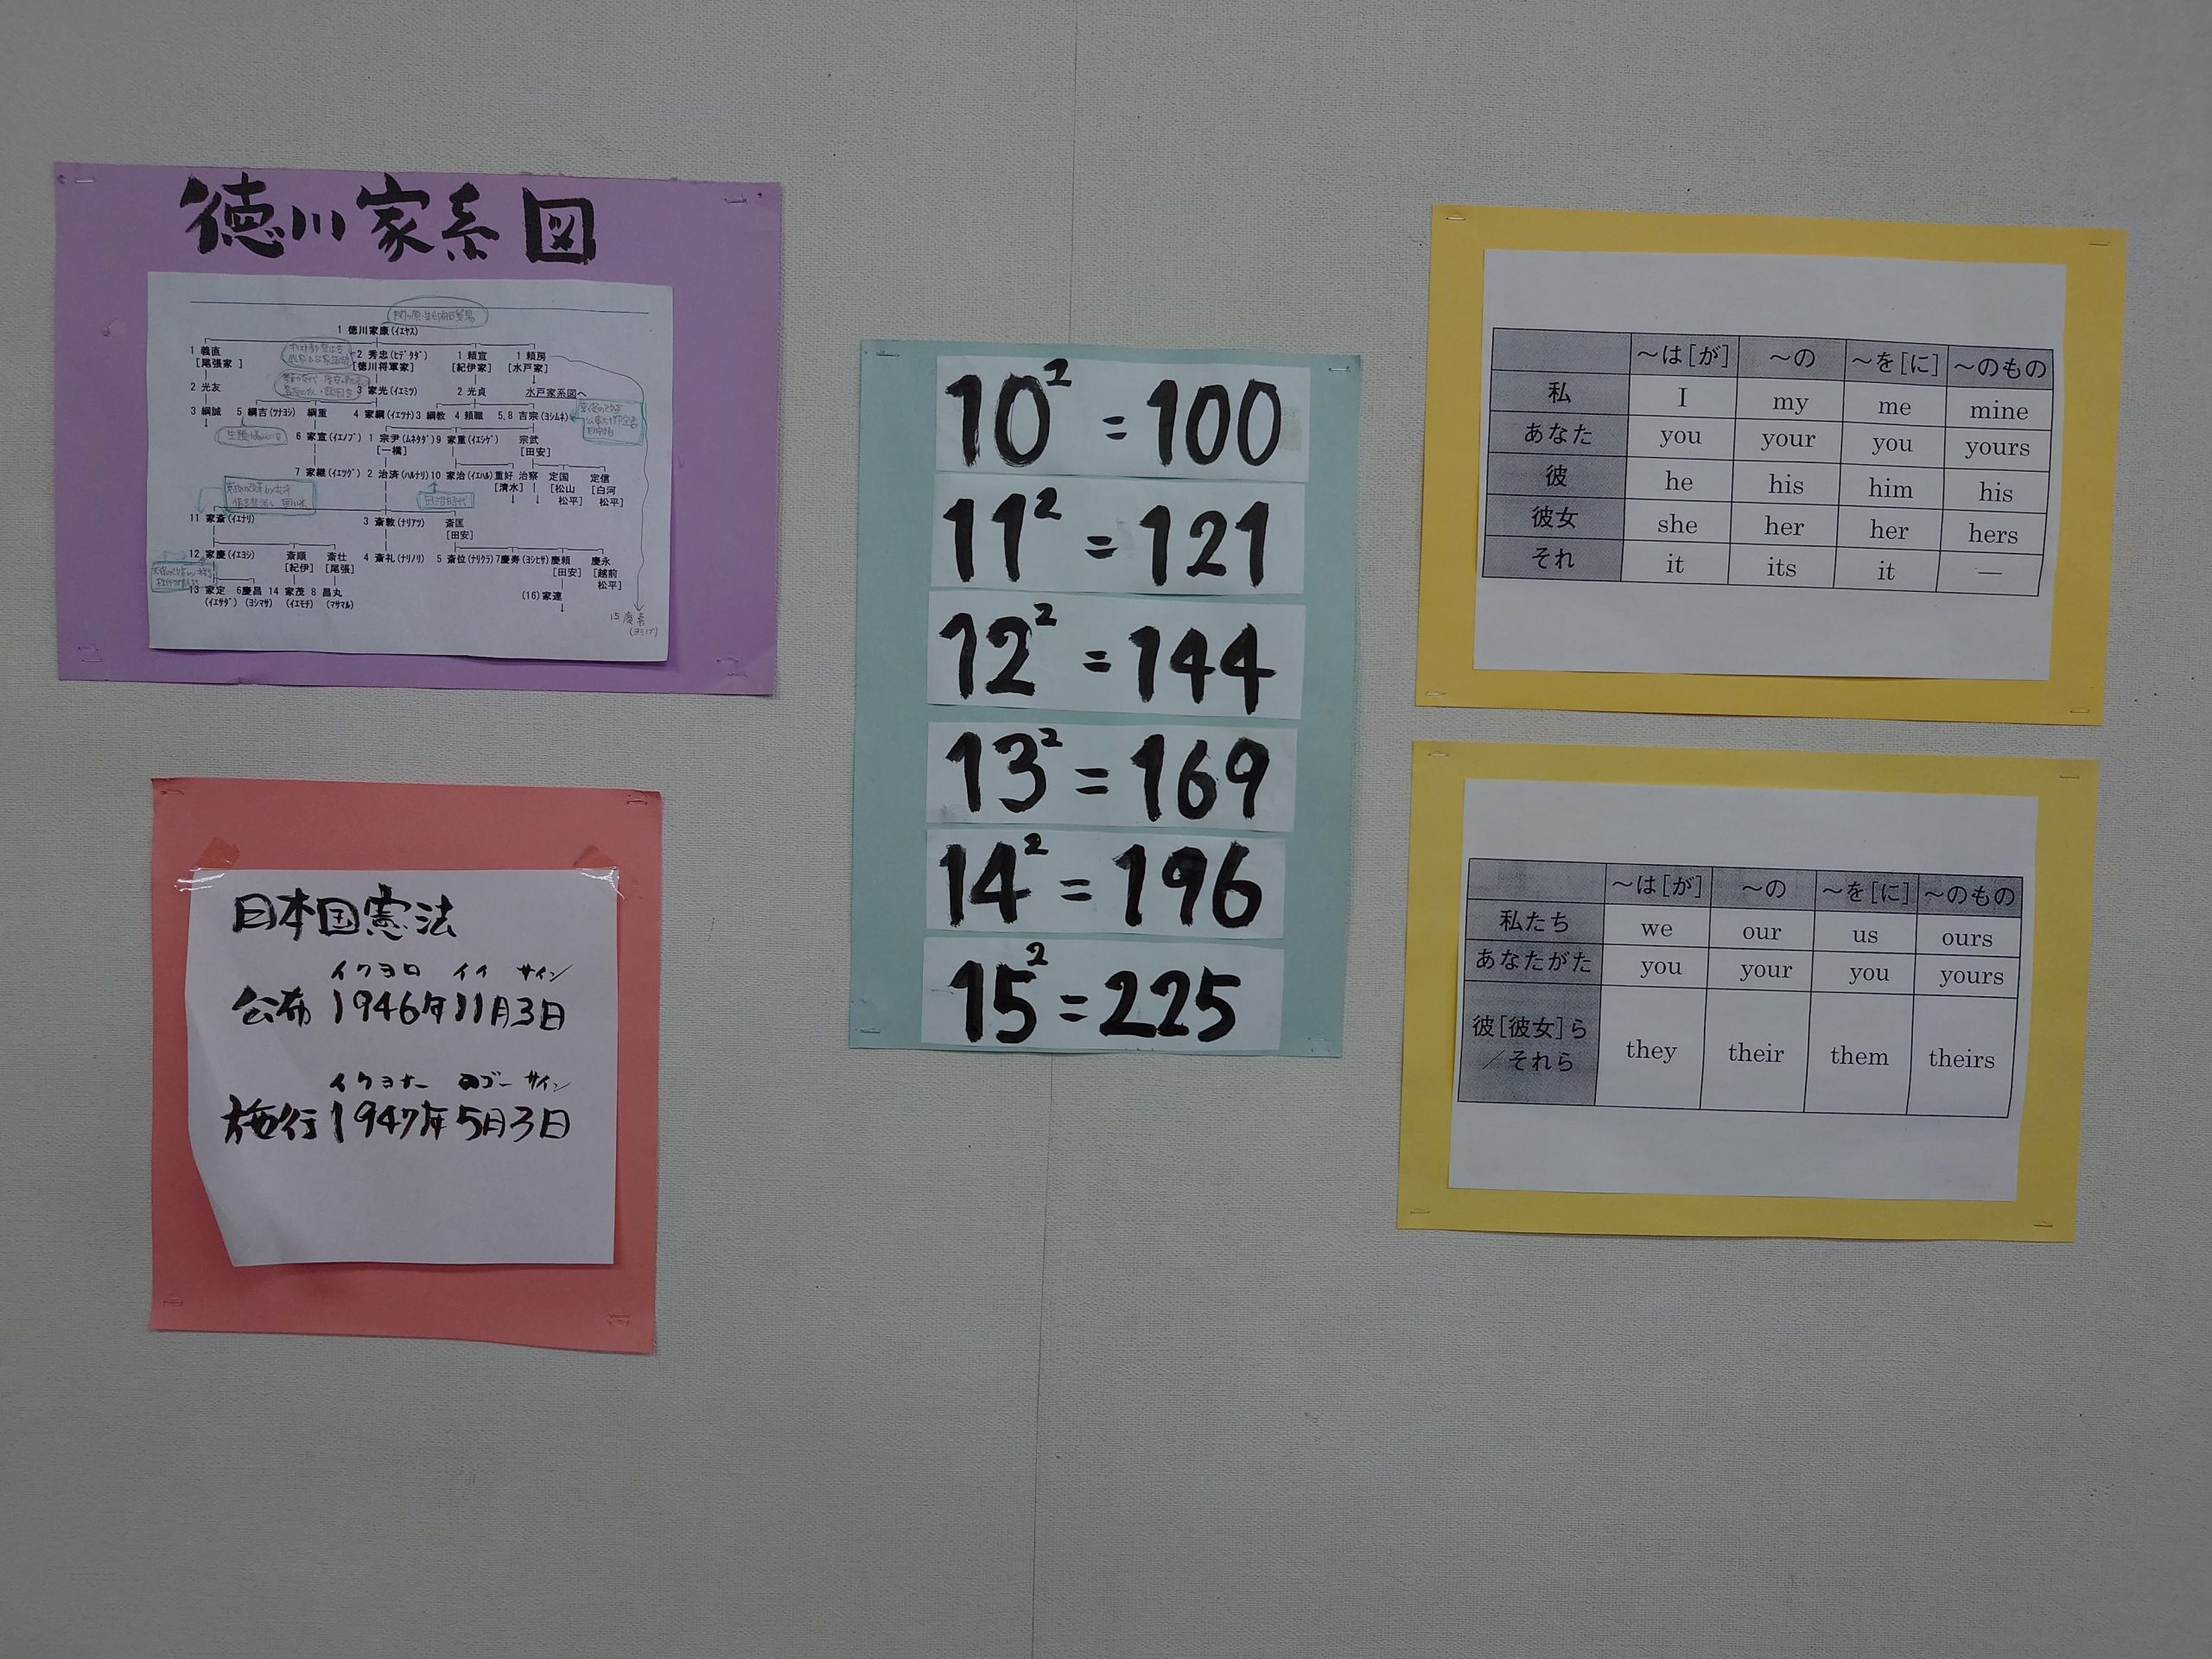 徳川家系図
1 徳川家康(イエヤス)
1 義直 2 秀忠(ヒデタダ) 1 頼宣 1 頼房
[尾張家] [徳川将軍家] [紀伊家] [水戸家]
2 光友 3 家光(イエミツ) 2 光貞 水戸家系図へ
3 綱誠 5 綱吉(ツナヨシ) 綱重 4 家綱(イエツナ) 3 綱教 4 頼職 5,8 吉宗(ヨシムネ)
6 家宣(イエノブ) 1 宗尹(ムネタダ) 9 家重(イエシゲ) 宗武
[一橋] [田安]
7 家継(イエツグ) 2 治済(ハルナリ) 10 家治(イエハル) 重好 治察 定国 定信
[清水] [松山 [白河
松平] 松平]
田沼時代
11 家斎(イエナリ) 3 斎敦(ナリアツ) 斎匡
[田安]
12 家慶(イエヨシ) 斎順 斎壮 4 斎礼(ナリノリ) 5 斎位(ナリクラ) 7慶寿(ヨシヒサ) 慶頼 慶永
[紀伊] [尾張] [田安] [越前
松平]
13 家定 6慶昌 14 家茂 8 昌丸 (16)家達
(イエサダ) (ヨシマサ) (イエモチ) (マサマル)
15 慶喜
日本国憲法
イクヨロ イイ サイン
公布 1946年11月3日
イクヨナー ゴー サイン
施行 1947年5月3日
10² = 100
11² = 121
12² = 144
13² = 169
14² = 196
15² = 225
～は[が] ～の ～を[に] ～のもの
私 I my me mine
あなた you your you yours
彼 he his him his
彼女 she her her hers
それ it its it —
～は[が] ～の ～を[に] ～のもの
私たち we our us ours
あなたがた you your you yours
彼[彼女]ら
／それら they their them theirs